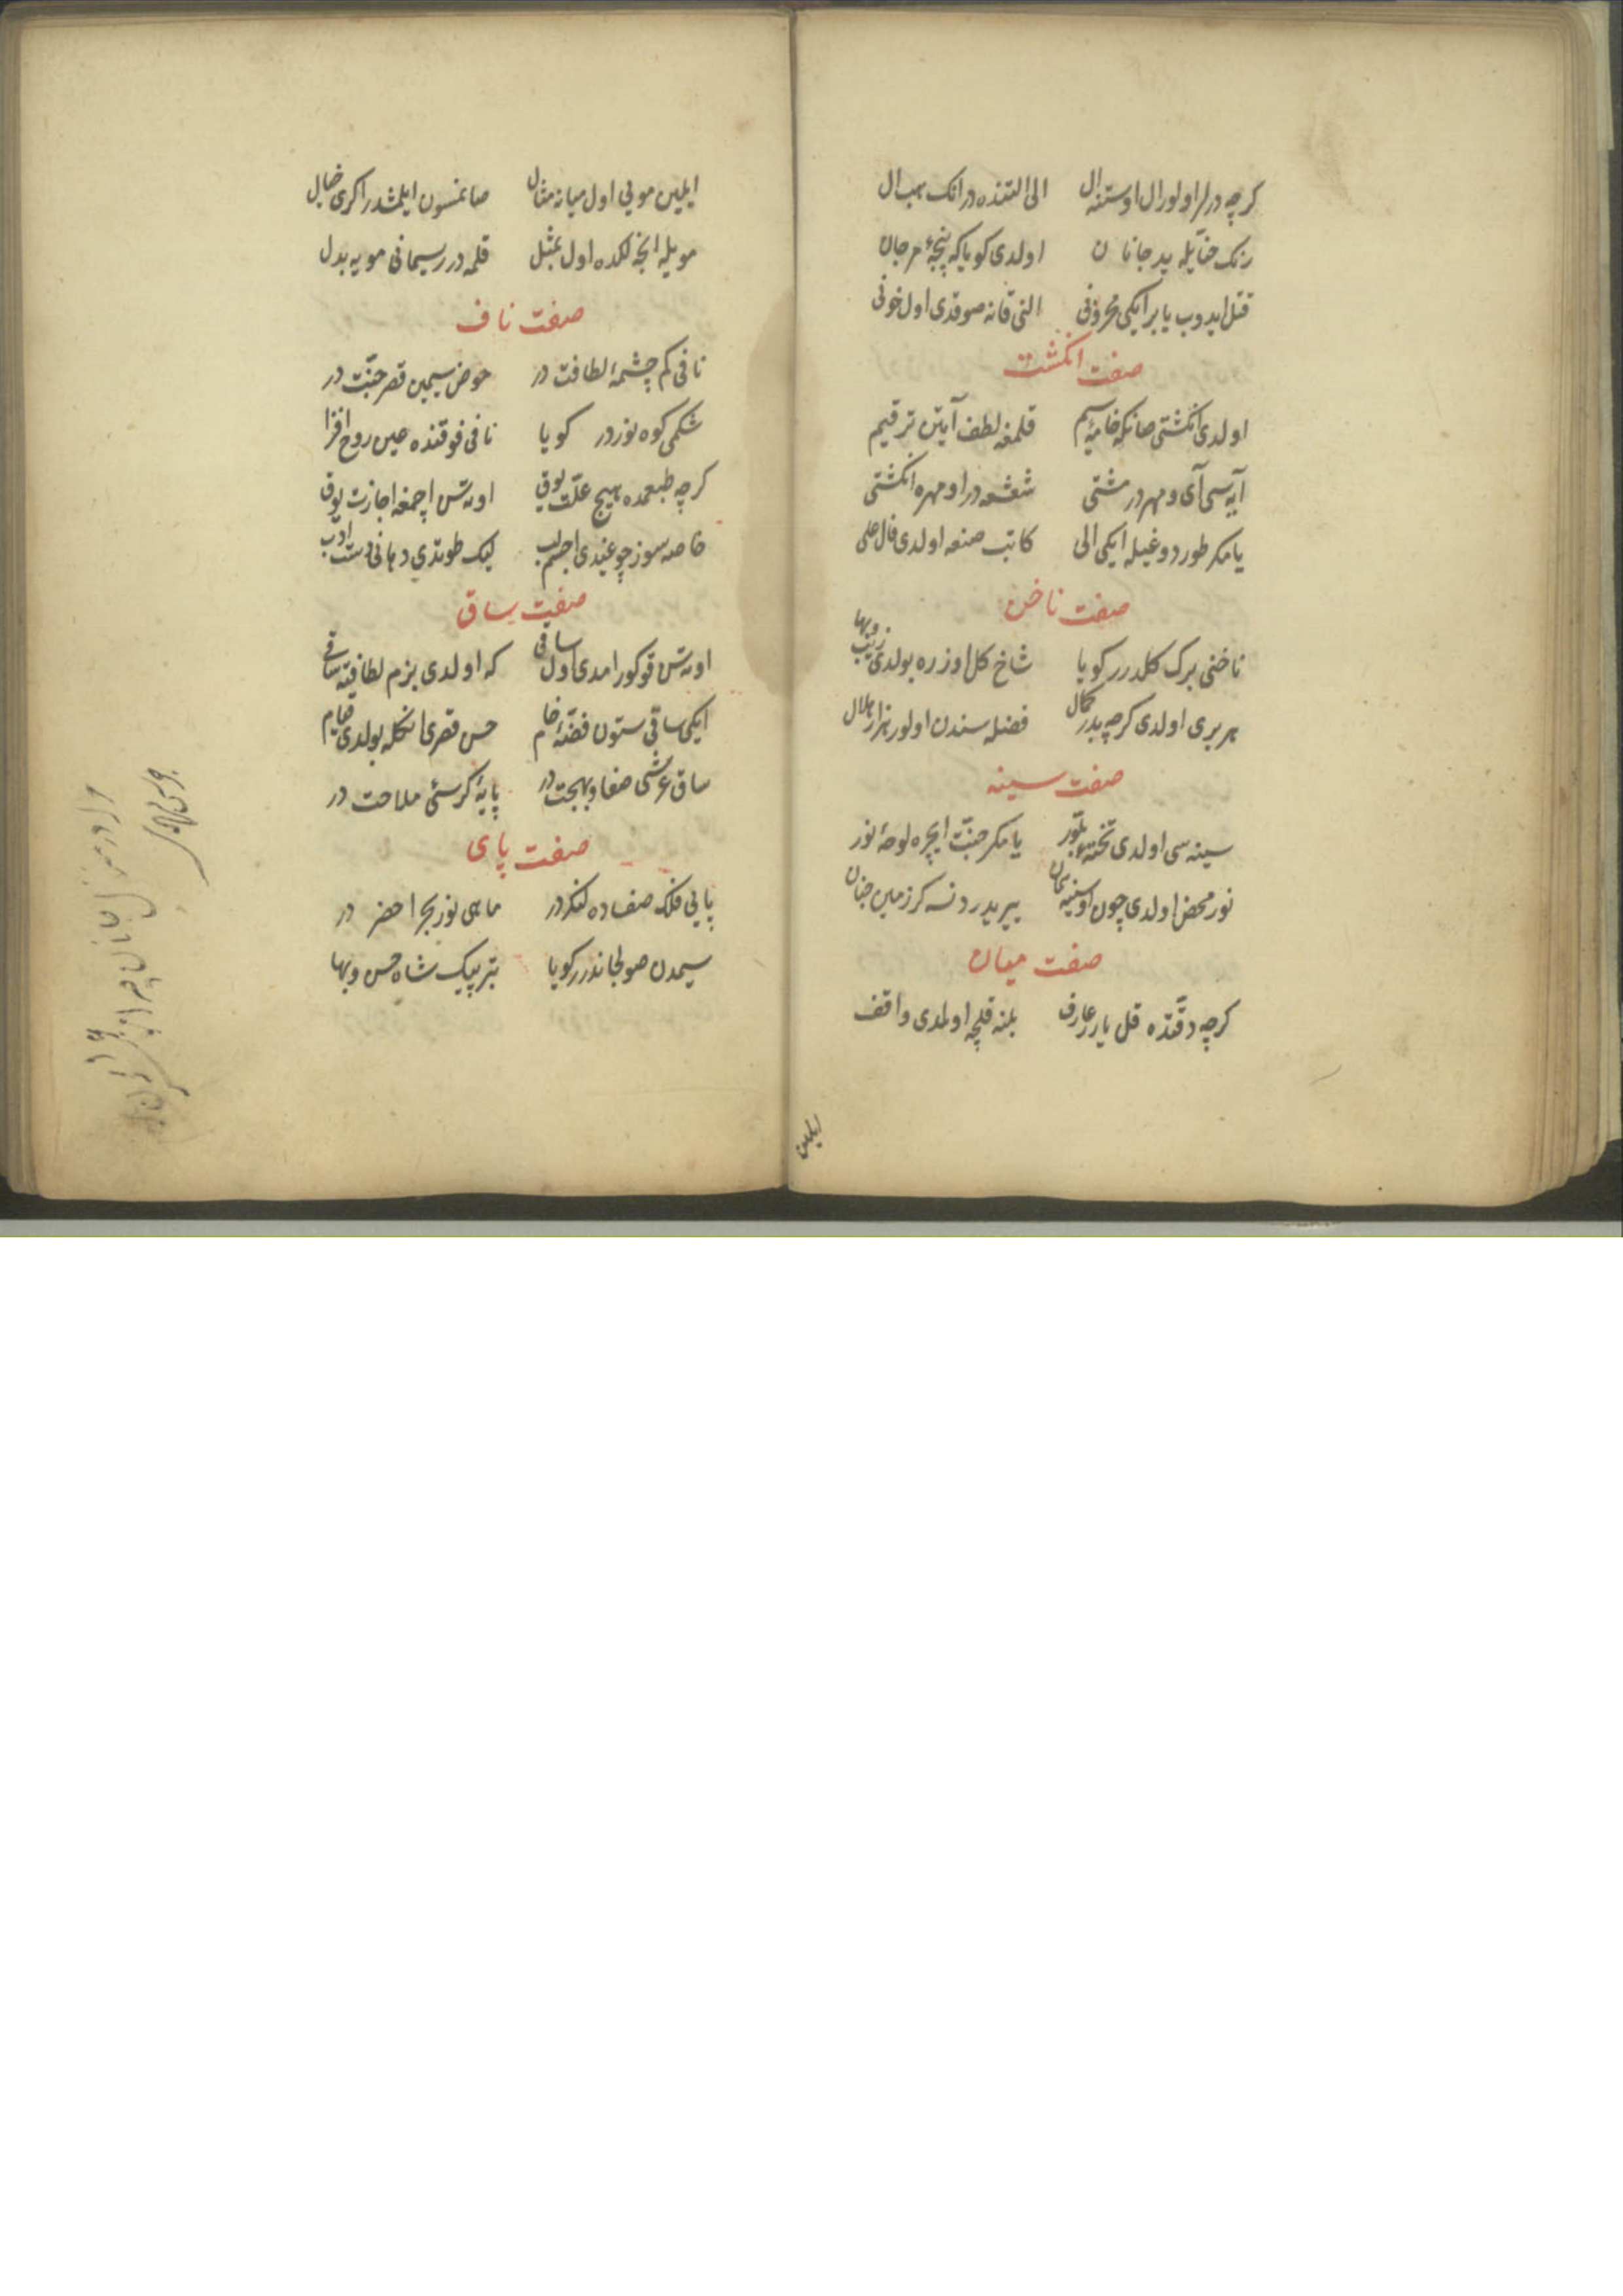 كرچه درلر اولور ال اوستنه ال الی التنده در انك هب ال
رنك حنایله ید جانان اولدی كویا كه پنجۀ مرجان
قتل ایدوب یا بر ایكی محزونی النی قانه صوقدی اول خونی
صفت انكشت
اولدی انكشتی صانكه خامۀ سیم قلمغه لطف آیتن ترقیم
آیه سی آی و مهردر مشتی شعشعه در او مهره انكشتی
یا مكر طوردوغیله ایكی الی كاتب صنعه اولدی قال علی
صفت ناخن
ناخنی برك كلدرر كویا شاخ كل اوزره بولدی زیب وبها
هر بری اولدی كرچه بدر كمال فضله سندن اولور هزار هلال
صفت سینه
سینه سی اولدی تختۀ بلّور یا مكر جنّت ایچره لوحۀ نور
نور محض اولدی چون او سینه یری در دنسه كر زمین جنان
صفت میان
كرچه دقّتده قل یارر عارف بلنه قلچه اولمدی واقف
ایلمین
ایلمین مویی اول میانه مثال صانمسون ایلمشدر اكری خیال
مویله انجه لكده اول بمثل قلمه در ریسمانی مویه بدل
صفت ناف
نافی كم چشمۀ لطافت در حوض سیمین قصر جنّت در
شكمی كوه نوردر كویا نافی فوقنده عین روح افزا
كرچه طبعمده هیچ علّت یوق اوته سن اچمغه اجازت یوق
خاصه سوز چوغیدی اچسم لب لیك طوتدی دهانی دست ادب
صفت ساق
اوته سن قو كور امدی اول ساقی كه اولدی بزم لطافته ساقی
ایكی ساقی ستون فضّۀ خام حسن قصری انكله بولدی قیام
ساق عرشی صفا وبهجت در پایۀ كرسئ ملاحت در
صفت پای
پایی فلك صفاده لنكردر ماهی نور بحر اخضر در
سیمدن صولجاندرر كویا بتر پیك شاه حسن وبها